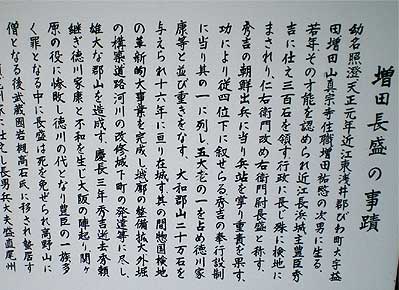 増田長盛の事蹟
幼名照澄天正元年近江東浅井郡びわ町大字益
田増田山真宗寺住職増田祐愍の次男に生る
若年その才能を認められ近江長浜城主豊臣秀
吉に仕え三百石を領す行政に長じ殊に検地に
まされり、仁右衛門改め右衛門尉長盛と称す、
秀吉の朝鮮出兵に当り兵站を掌り重責を果す、
功により従四位下に叙せらる秀吉の奉行設制
に当り其の一に列し五大老の一を占め徳川家
康等と並び重きをなす、大和郡山二十万石を
与えられ十六年に亘り在城す其の間惣国検地
の革新的大事業を完成し城廓の整備拡大外堀
の構築道路河川の改修城下町の発達等に尽し、
雄大な郡山を造成す、慶長三年秀吉逝去秀頼
継ぎ徳川家康と不和を生じ大阪の陣起り関ヶ
原の役に惨敗し徳川の代となり豊臣の一族多
く罪となる中に長盛は死を免ぜられ高野山に
僧となる後武蔵国岩槻高石氏に移され蟄居す
仕えし長男兵大夫盛直尾州